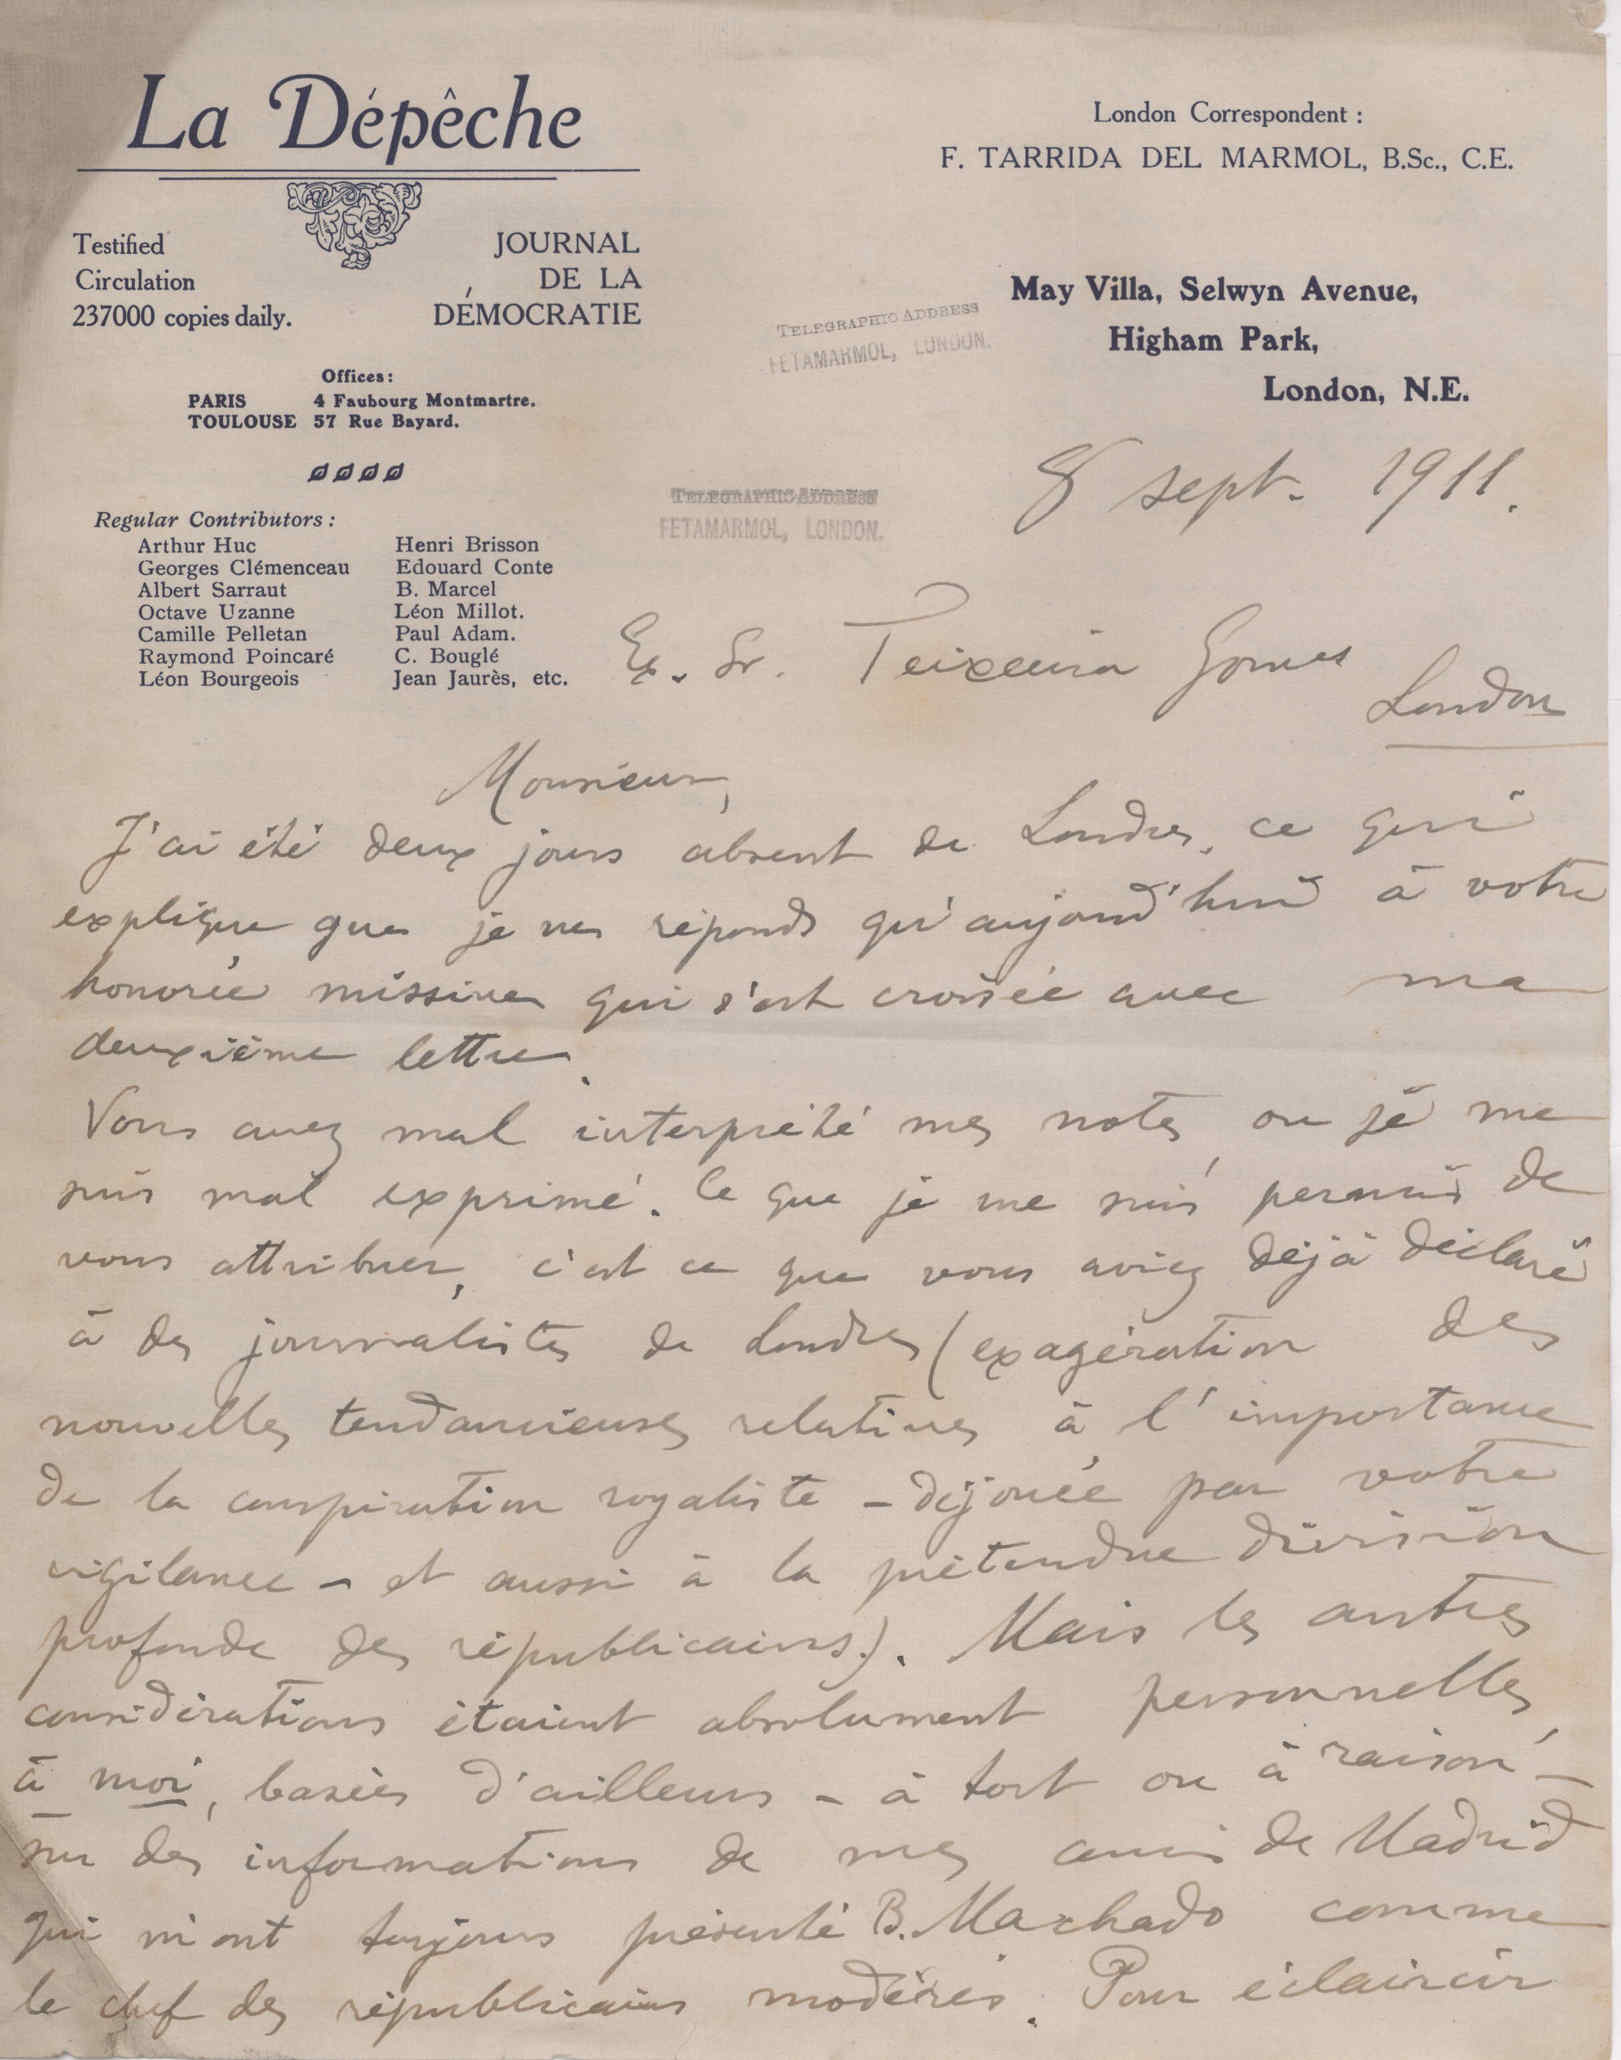 La Dépêche
Testified
Circulation
237000 copies daily.
JOURNAL
DE LA
DÉMOCRATIE
Offices:
PARIS 4 Faubourg Montmartre.
TOULOUSE 57 Rue Bayard.
Regular Contributors:
Arthur Huc
Georges Clémenceau
Albert Sarraut
Octave Uzanne
Camille Pelletan
Raymond Poincaré
Léon Bourgeois
Henri Brisson
Edouard Conte
B. Marcel
Léon Millot.
Paul Adam.
C. Bouglé
Jean Jaurès, etc.
London Correspondent:
F. TARRIDA DEL MARMOL, B.Sc., C.E.
May Villa, Selwyn Avenue,
Higham Park,
London, N.E.
TELEGRAPHIC ADDRESS
FETAMARMOL, LONDON.
TELEGRAPHIC ADDRESS
FETAMARMOL, LONDON.
8 sept. 1911.
Ex. Sr. Teixeira Gomes
London
Monsieur,
J'ai été deux jours absent de Londres, ce qui
explique que je ne réponds qu'aujourd'hui à votre
honorée missive qui s'est croisée avec ma
deuxième lettre.
Vous avez mal interprété mes notes, ou je me
suis mal exprimé. Ce que je me suis permis de
vous attribuer, c'est ce que vous aviez déjà déclaré
à des journalistes de Londres (exagération des
nouvelles tendancieuses relatives à l'importance
de la conspiration royaliste - déjouée par votre
vigilance - et aussi à la prétendue division
profonde des républicains). Mais les autres
considérations étaient absolument personnelles,
à moi, basées d'ailleurs - à tort ou à raison -
sur des informations de mes amis de Madrid
qui m'ont toujours présenté B. Machado comme
le chef des républicains modérés. Pour éclaircir